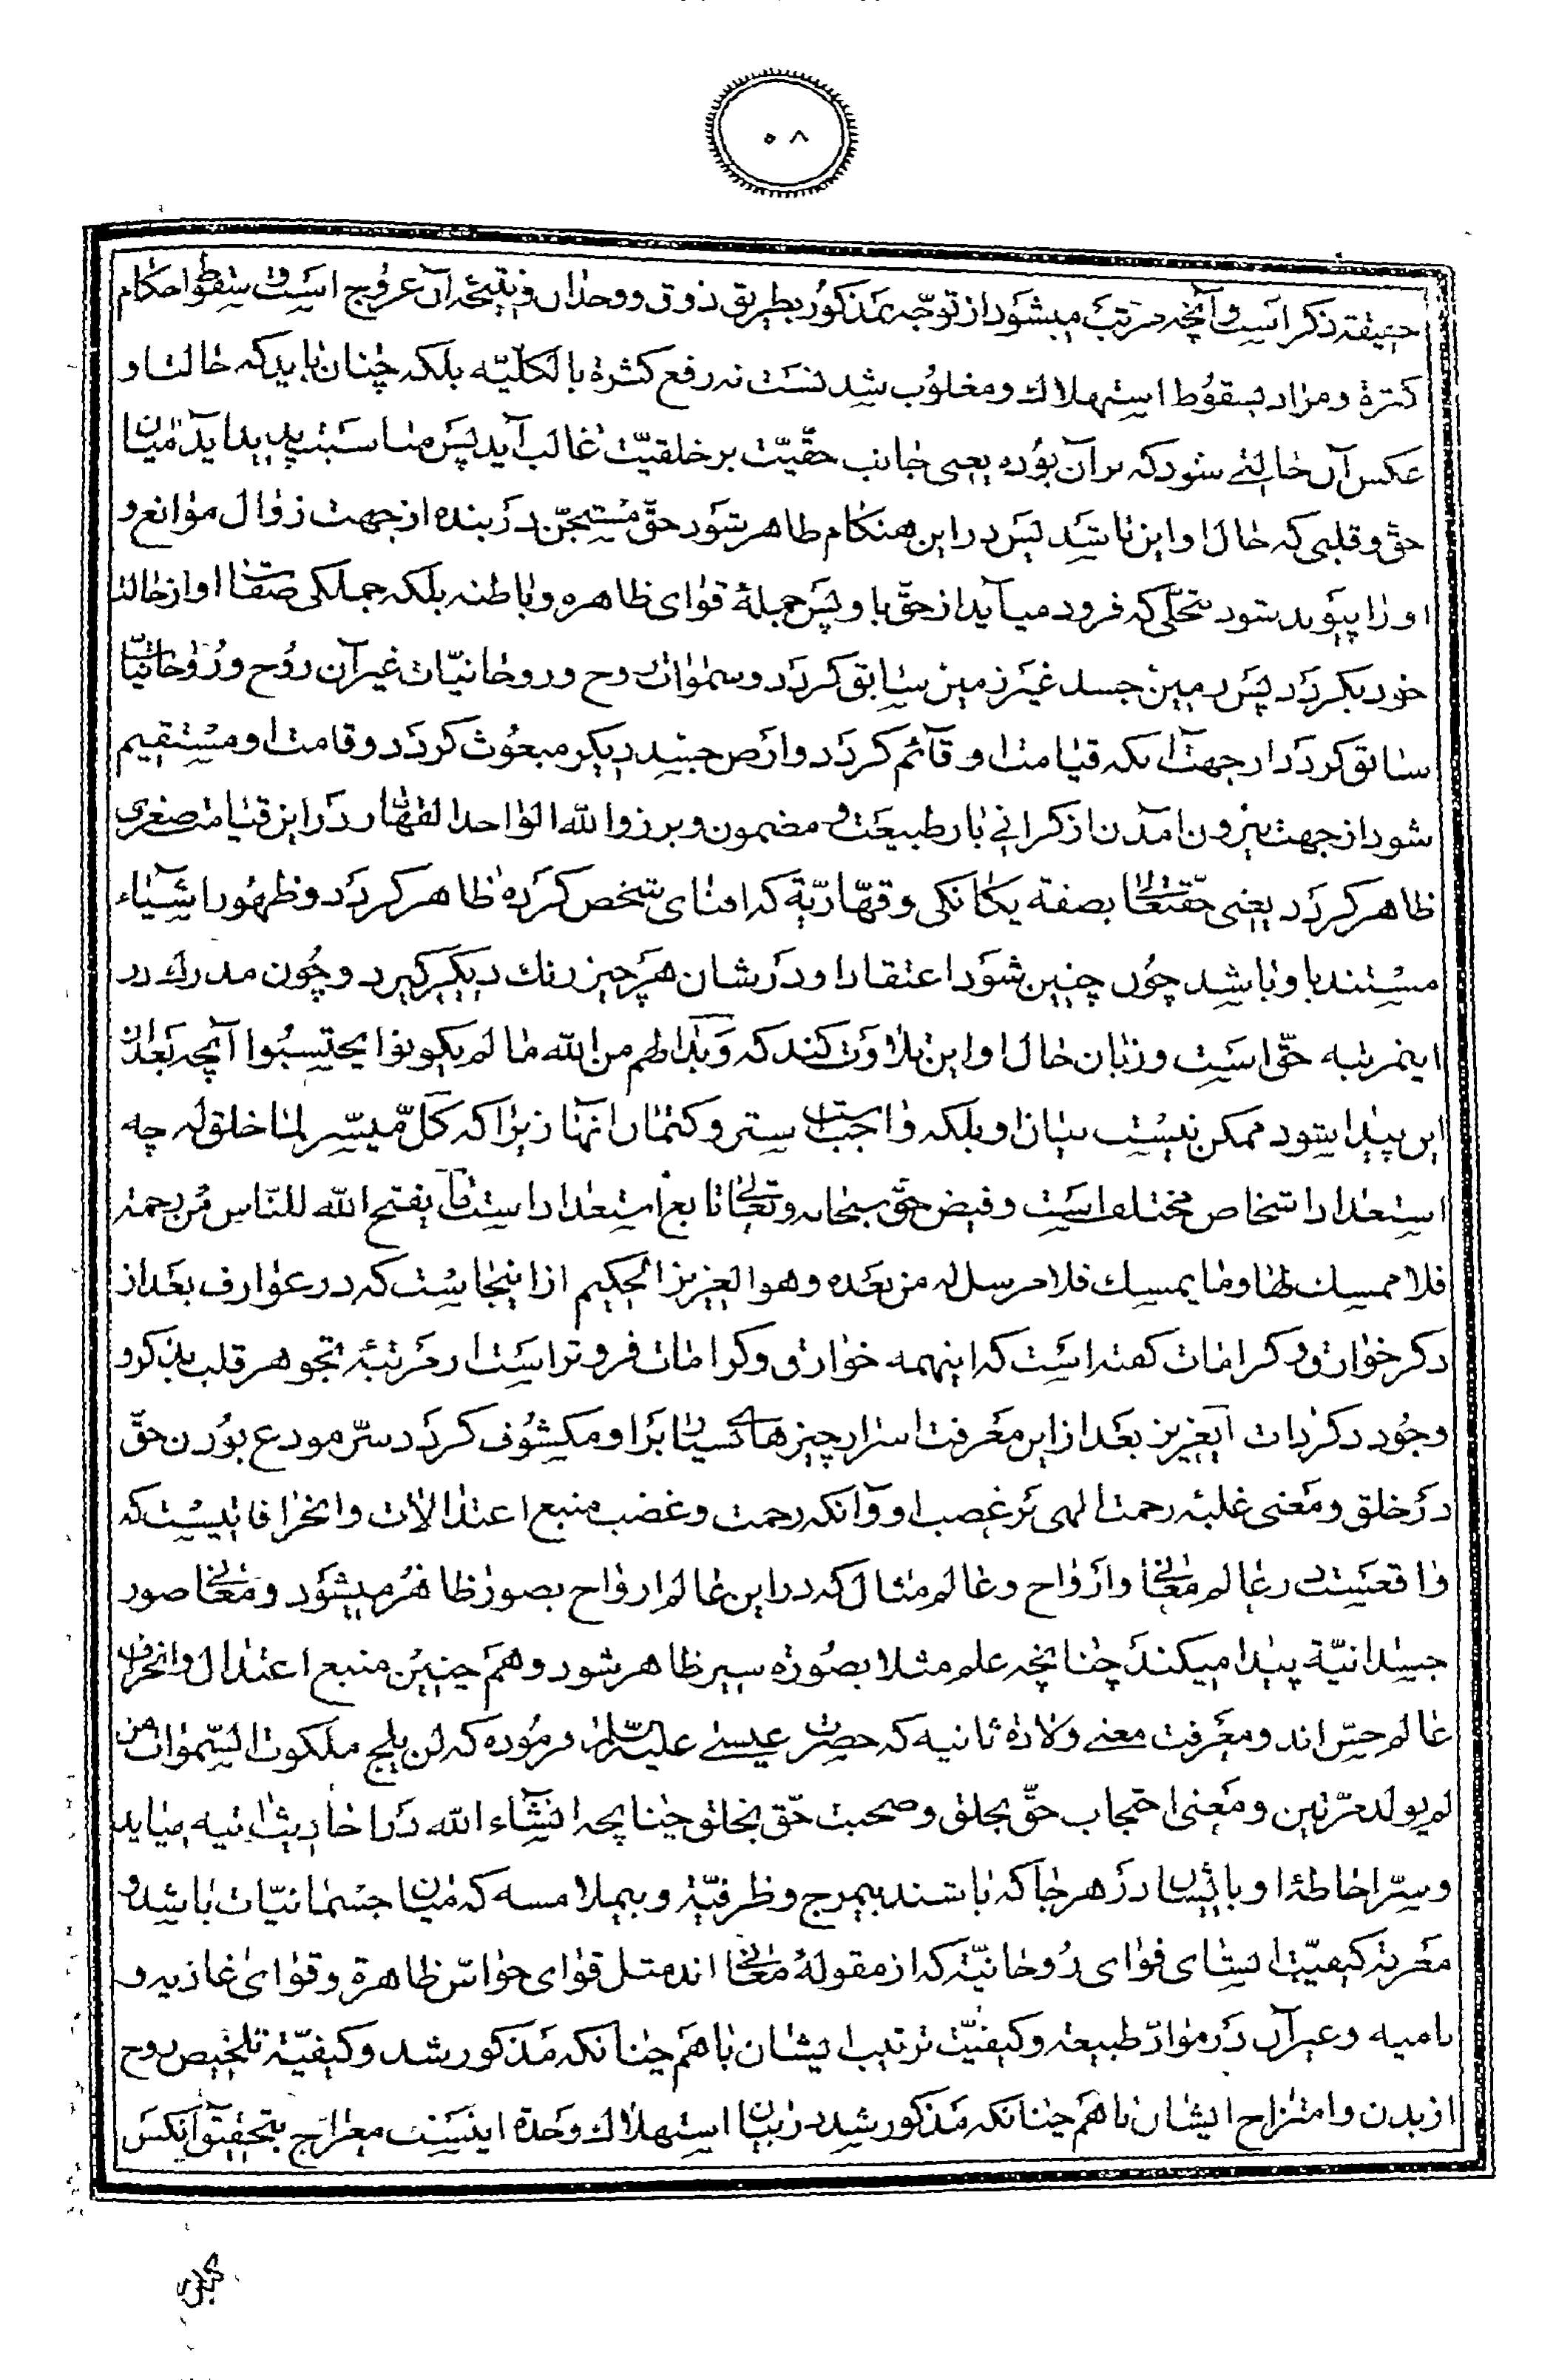 ٥٨
حقیقة ذکر است و آنچه مرتب میشود از توجه مذکور بطریق ذوق و وجدان و نتیجه آن عروج است و سقوط احکام
کثرة و مراد بسقوط استهلاك و مغلوب شدنست نه رفع کثرة بالکلیّه بلکه چنان باید که حالت او
عکس آن حالتی شود که بر آن بوده یعنی جانب حقیّت بر خلقیّت غالب آید پس مناسبت پدید آید میان
حق و قلبی که حال او این باشد پس در این هنکام ظاهر شود حقّ مستجنّ در بنده از جهت زوال موانع و
او را پیوند شود بتجلّی که فرود میآید از حقّ باو پس جملهٔ قوای ظاهره و باطنه بلکه جملکی صفات او از حالت
خود بکردد پس زمین جسد غیر زمین سابق کردد و سموات روح و روحانیّات غیر آن روح و روحانیّات
سابق کردد از جهت آنکه قیامت او قآئم کردد و ارض جسد دیکر مبعوث کردد و قامت او مستقیم
شود از جهت بیرون آمدن از کرانی بار طبیعت و مضمون و برزوا لله الواحد القهّار در این قیامت صغری
ظاهر کردد یعنی حقتعالی بصفة یکانکی و قهّاریّة که افنای تشخص کرده ظاهر کردد و ظهور اشیآء
مستند باو باشد چون چنین شود اعتقاد او در شان هر چیز رنك دیکر کیرد و چون مدرك در
اینمرتبه حقّ است و زبان حال او این تلاوت کند که وَ بَدا لهم من الله ما لم یکونوا یحتسبوا آنچه بعد از
این پیدا شود ممکن نیست بیان او بلکه واجبست ستر و کتمان آنها زیرا که کلّ میسّر لما خلق له چه
استعداد اشخاص مختلف است و فیض حقّ سبحانه و تعالی تابع استعداد است ما یفتح الله للنّاس من رحمة
فلا ممسك لها و ما یمسك فلا مرسل له من بعده و هو العزیز الحکیم از اینجاست که در عوارف بعد از
ذکر خوارق و کرامات کفته است که اینهمه خوارق و کرامات فروتر است از مرتبهٔ تجوهر قلب بذکر و
وجود ذکر ذات ایعزیز بعد از این معرفت اسرار چیزهای بسیار بر او مکشوف کردد سرّ مودع بودن حقّ
در خلق و معنی غلبه رحمت الهی بر غضب او و آنکه رحمت و غضب منبع اعتدالات و انحرافاتیست که
واقعست در عالم معانی و ارواح و عالم مثال که در این عالم ارواح بصور ظاهر میشود و معانی صور
جسدانیّة پیدا میکند چنانچه علم مثلا بصورة سیر ظاهر شود و هم چنین منبع اعتدال و انحراف
عالم حسّ اند و معرفت معنی ولادة ثانیه که حضرت عیسی علیه السّلام فرموده که لن یلج ملکوت السّموات من
لم یولد مرّتین و معنی احتجاب حقّ بخلق و صحبت حقّ بخلق چنانچه انشآء الله در احادیث اتیه میاید
و سرّ احاطهٔ او با ایشان در هر جا که باشند بیمزج و ظرفیّة و بیملامسه که میان جسمانیّات باشد و
معرفة کیفیّت انبثای قوای روحانیّة که از مقولهٔ معانی اند مثل قوای حواسّ ظاهرة و قوای غاذیه و
نامیه و غیر آن در موادّ طبیعة و کیفیّت ترتیب ایشان با هم چنانکه مذکور شد و کیفیّة تلخیص روح
از بدن و امتزاج ایشان با هم چنانکه مذکور شد در بیان استهلاك وحدة اینست معراج بتحقیق آنکس